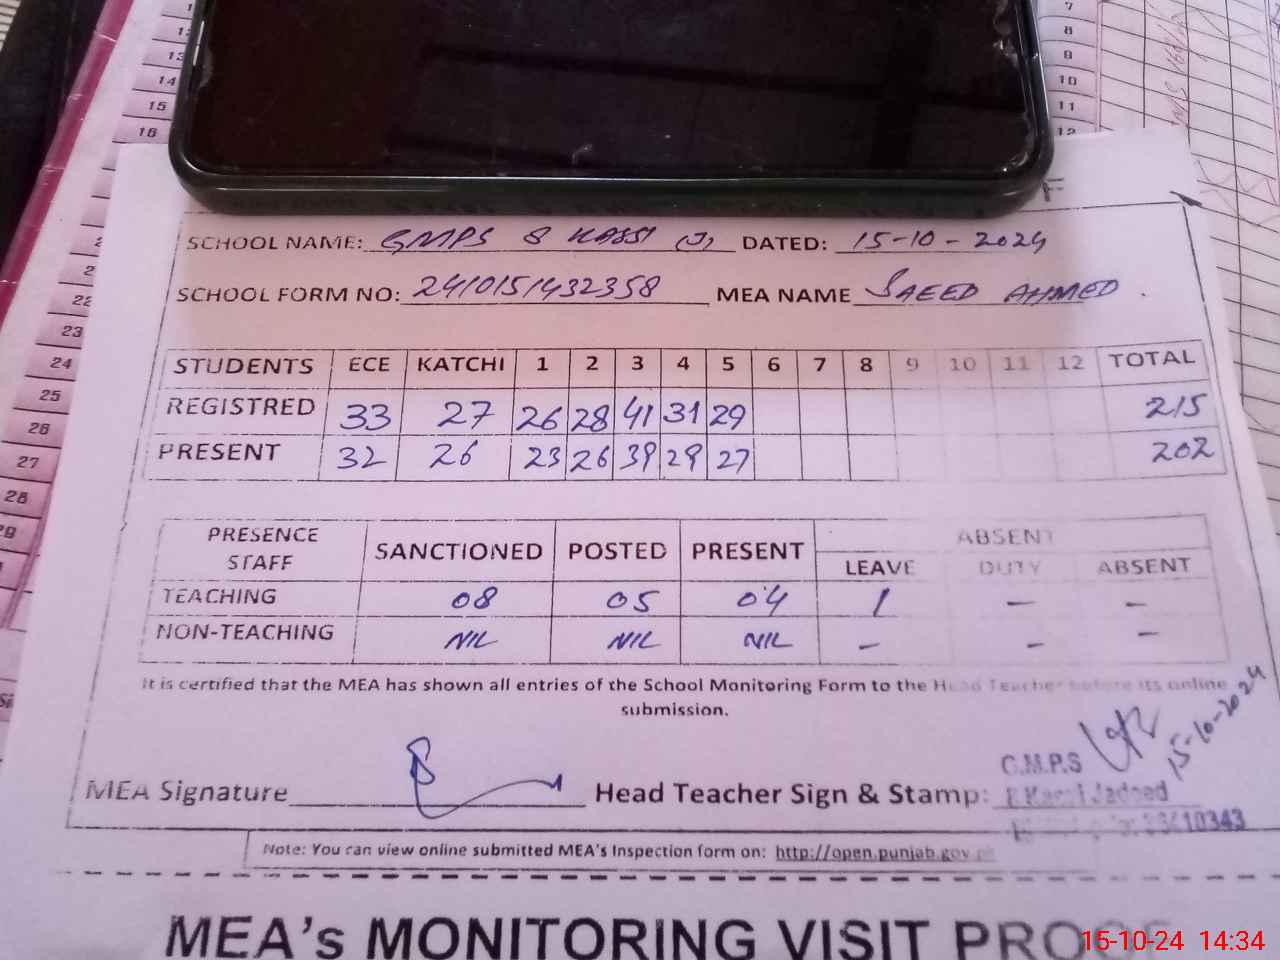 SCHOOL NAME: GMPS 8 KASSI (J) DATED: 15-10-2024
SCHOOL FORM NO: 2410151432358 MEA NAME SAEED AHMED.
STUDENTS ECE KATCHI 1 2 3 4 5 6 7 8 9 10 11 12 TOTAL
REGISTRED 33 27 26 28 41 31 29 215
PRESENT 32 26 23 26 39 29 27 202
PRESENCE STAFF SANCTIONED POSTED PRESENT ABSENT
LEAVE DUTY ABSENT
TEACHING 08 05 04 1 – –
NON-TEACHING NIL NIL NIL – – –
It is certified that the MEA has shown all entries of the School Monitoring Form to the Head Teacher before its online
submission.
15-10-2024
G.M.P.S
MEA Signature Head Teacher Sign & Stamp:
Jadeed
10343
Note: You can view online submitted MEA's Inspection form on: http://open.punjab.gov.pk
MEA's MONITORING VISIT PROOF
15-10-24 14:34
7
8
9
10
11
12
13
14
15
16
22
23
24
25
26
27
28
29